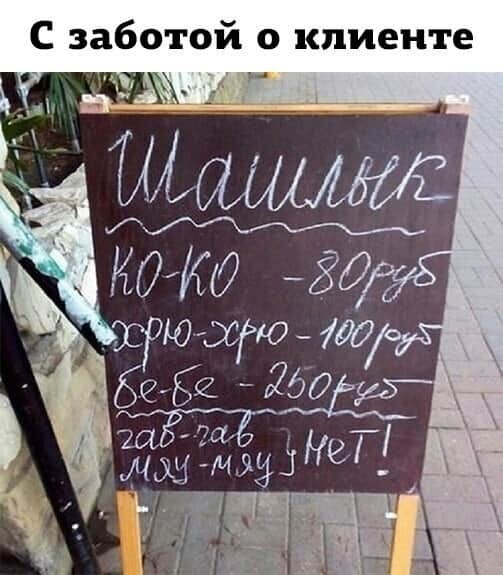 С заботой о клиенте
Шашлык
КО-КО - 80руб
хрю-хрю - 100руб
бе-бе - 250руб
гав-гав } Нет!
мяу-мяу